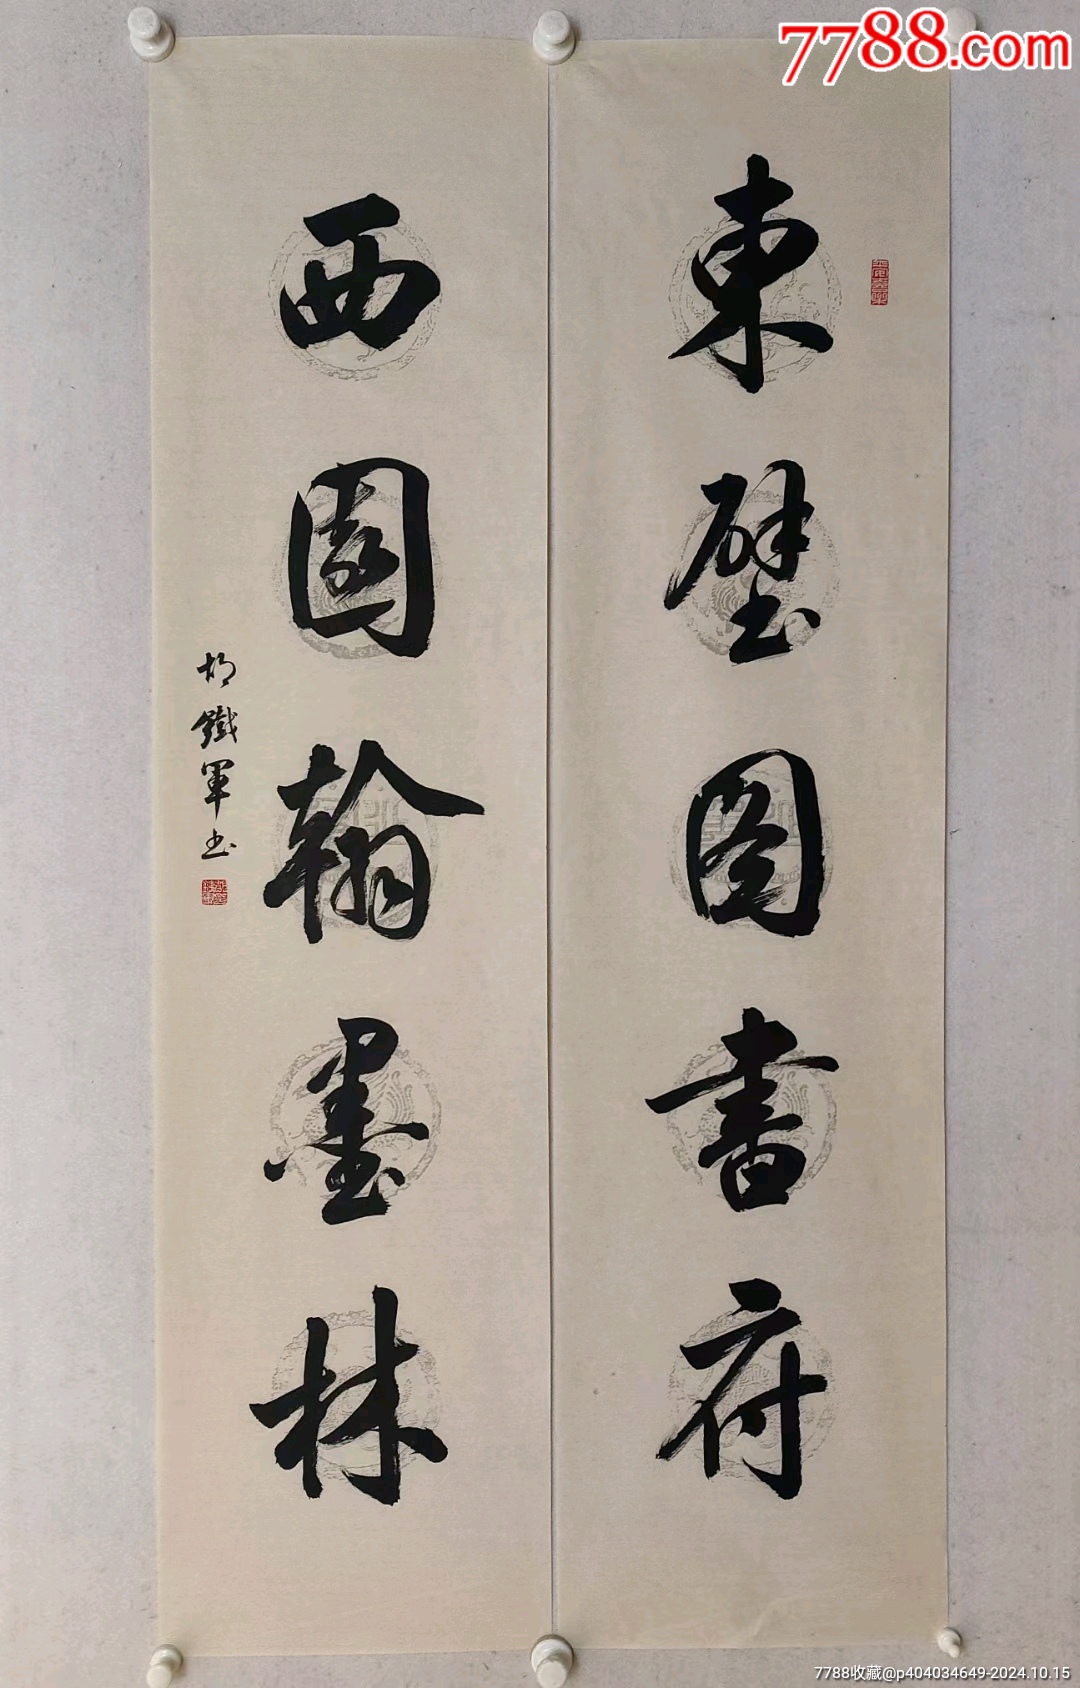 7788.com
東壁图書府
西園翰墨林
胡鐵軍书
7788收藏@p404034649-2024.10.15